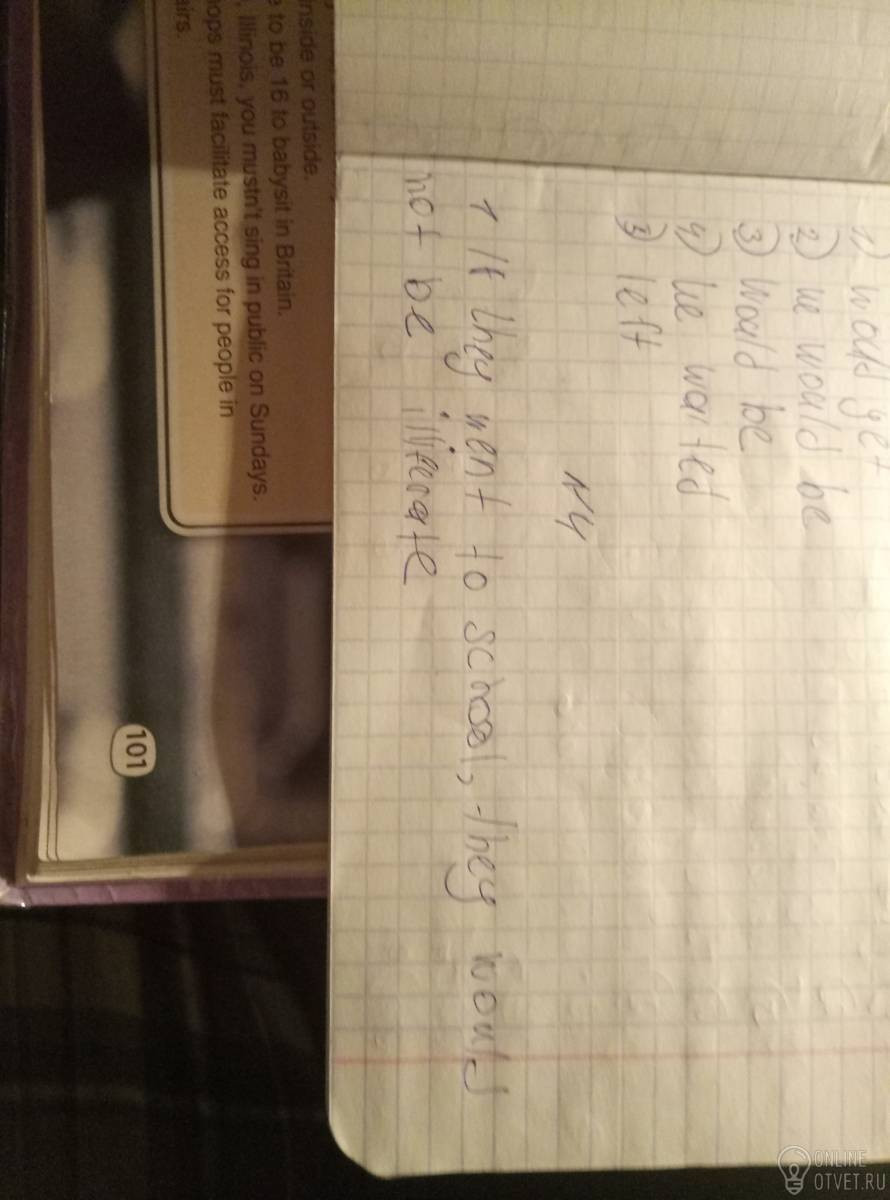 1) would get
2) he would be
3) would be
4) he waited
5) left
N4
1 If they went to school, they would
not be illiterate
inside or outside.
e to be 16 to babysit in Britain.
, Illinois, you mustn't sing in public on Sundays.
hops must facilitate access for people in
airs.
101
ONLINE
OTVET.RU